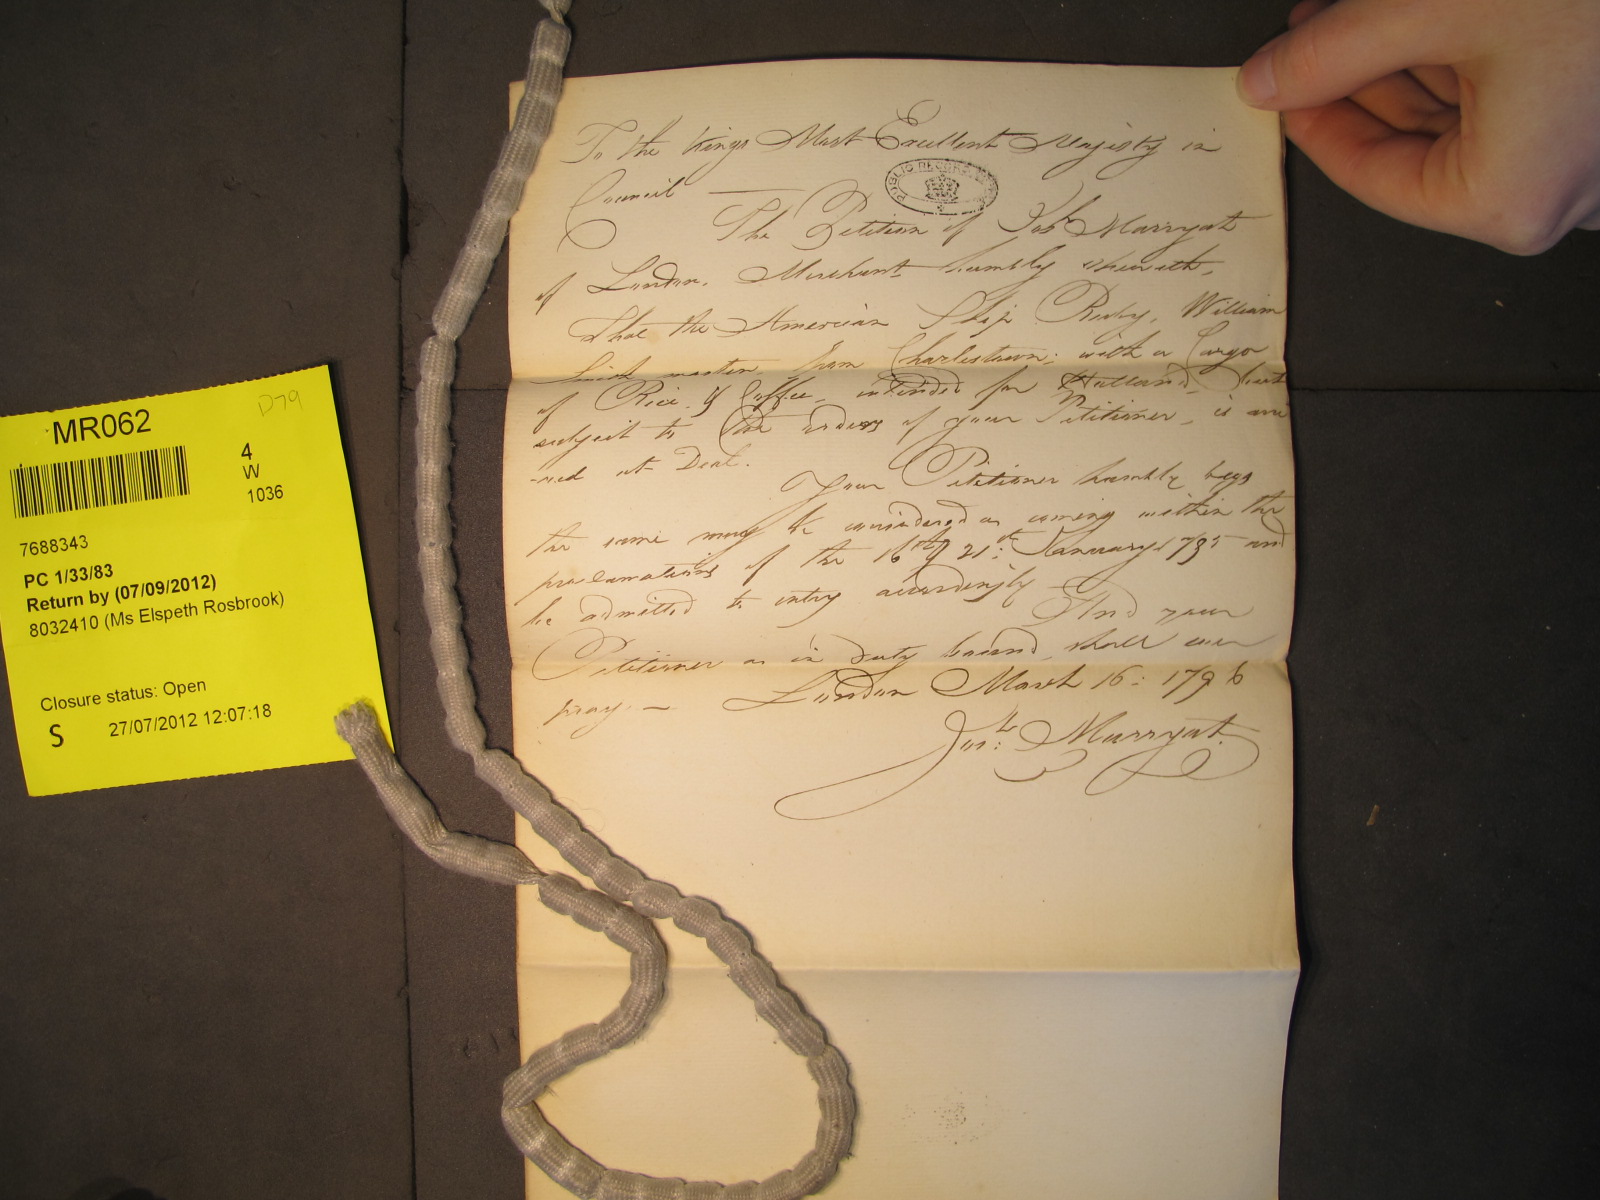 To the Kings Most Excellent Majesty in
Council
PUBLIC RECORD
The Petition of Josh Marryat
of London, Merchant humbly sheweth,
That the American Ship Ruby, William
master, from Charlestown; with a Cargo
of Rice & Coffee, intended for Holland, but
subject to the orders of your Petitioner, is arri
-ved at Deal.
Your Petitioner humbly begs
the same may be considered as coming within the
proclamations of the 16th & 21st January 1795 and
be admitted to entry accordingly
And your
Petitioner as in duty bound, shall ever
pray. —
London March 16: 1796
Josh: Marryat.
D79
MR062
4
W
1036
7688343
PC 1/33/83
Return by (07/09/2012)
8032410 (Ms Elspeth Rosbrook)
Closure status: Open
S
27/07/2012 12:07:18